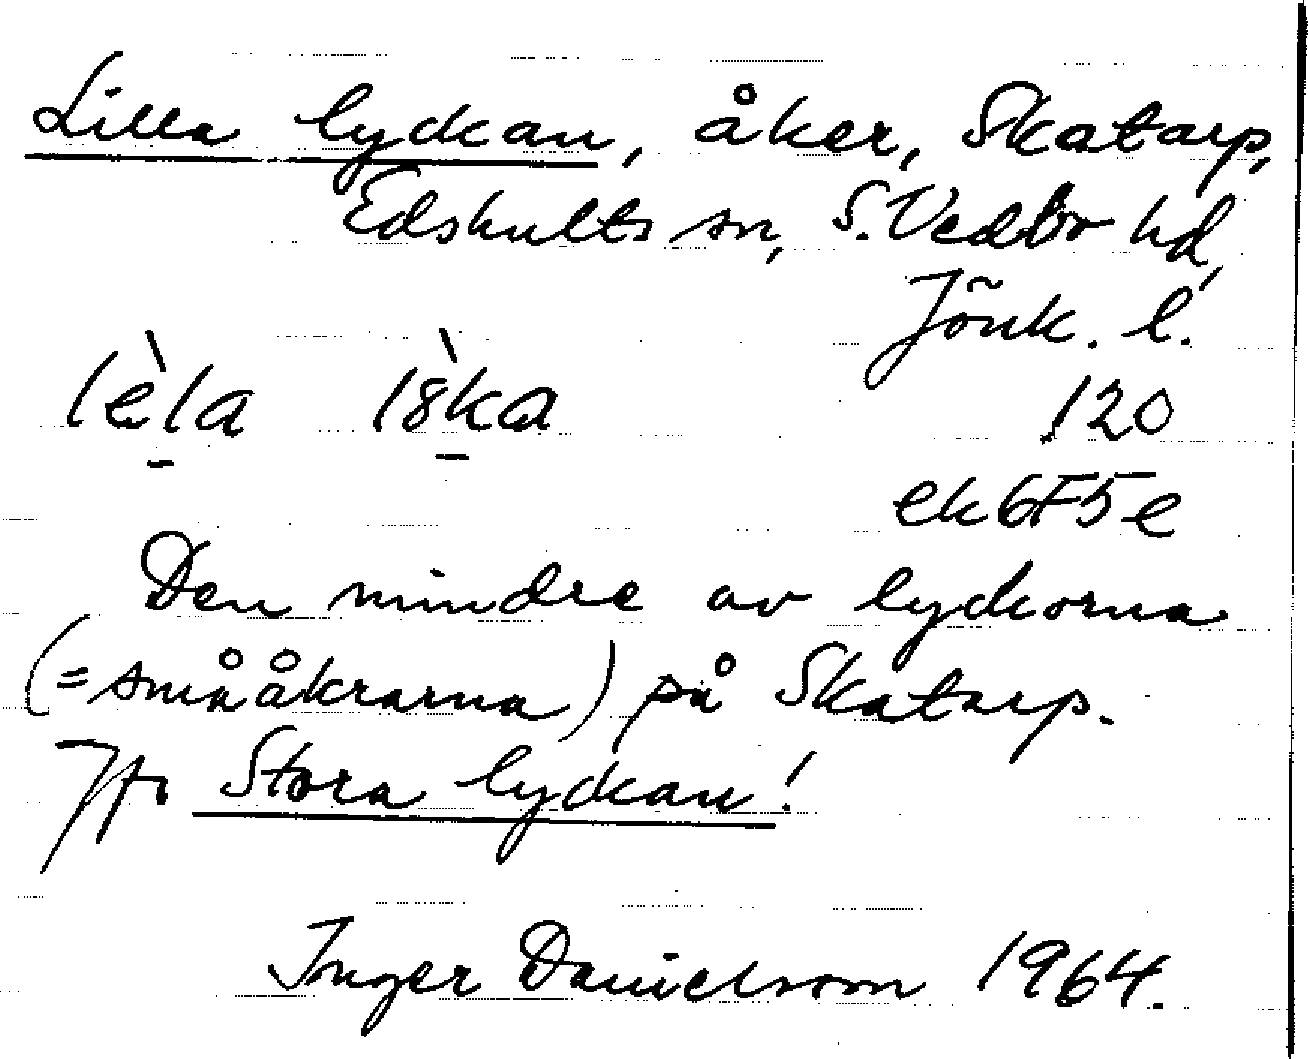 Lilla lyckan, åker, Skatarp,
Edshults sn, S. Vedbo hd,
Jönk. l.
lèla l8̀ka 120
ek6F5e
Den mindre av lyckorna
(=småå̊krarna) på Skatarp.
Jfr Stora lyckan!
Inger Danielsson 1964.